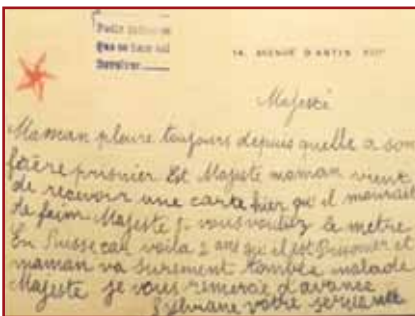 Petit
que se
14, AVENUE D'ANTIN VIIIᵉ
Majesté
Maman pleure toujours depuis quelle a son
frère prisnier Est Majeste maman vient
de recevoir une carte hier qu'il mourait
de faim Majeste vous voulez le metre
En Suisse car voila 2 ans qu'il est Prisonier et
maman va surement tombée malade
Majeste je vous remercie d'avance
Sylviane votre servante